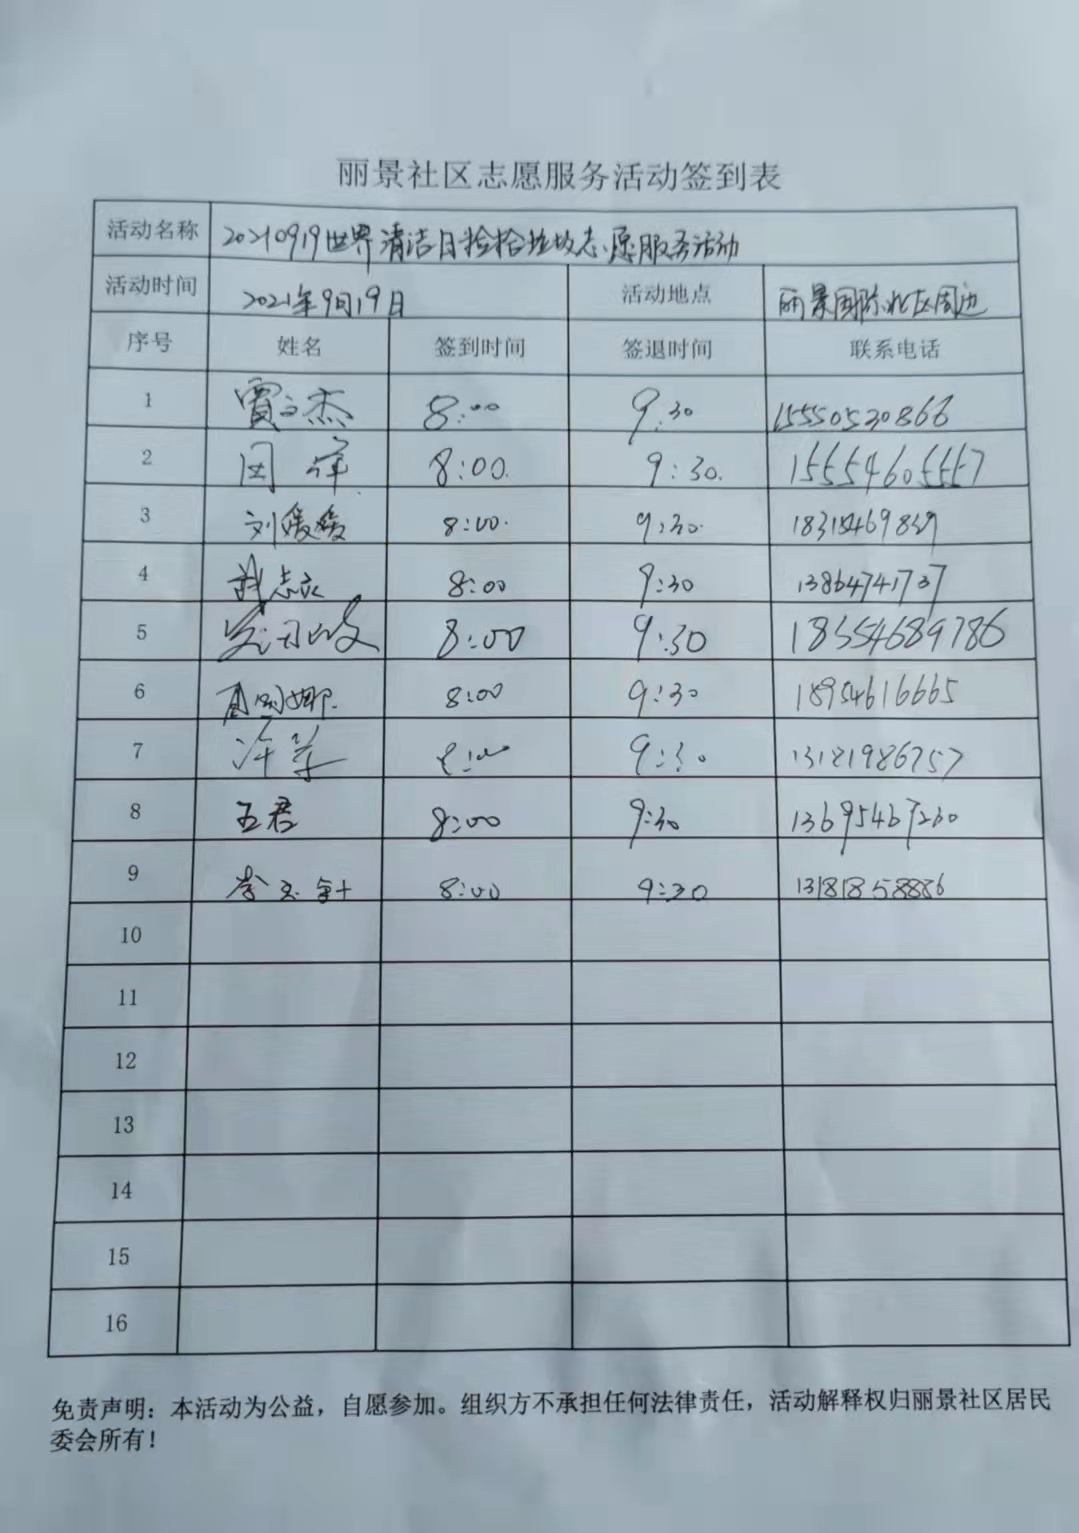 丽景社区志愿服务活动签到表
活动名称 20210919世界清洁日捡拾垃圾志愿服务活动
活动时间 2021年9月19日 活动地点 丽景国际北区周边
序号 姓名 签到时间 签退时间 联系电话
1 贾文杰 8:00 9:30 15550530866
2 8:00 9:30 15554605557
3 刘媛媛 8:00 9:30
4 8:00 9:30 13864741737
5 8:00 9:30 18554689786
6 8:00 9:30 18954616665
7 8:00 9:30 13181986757
8 王君 8:00 9:30 13695467230
9 8:00 9:30 13181858886
10
11
12
13
14
15
16
免责声明：本活动为公益，自愿参加。组织方不承担任何法律责任，活动解释权归丽景社区居民
委会所有！